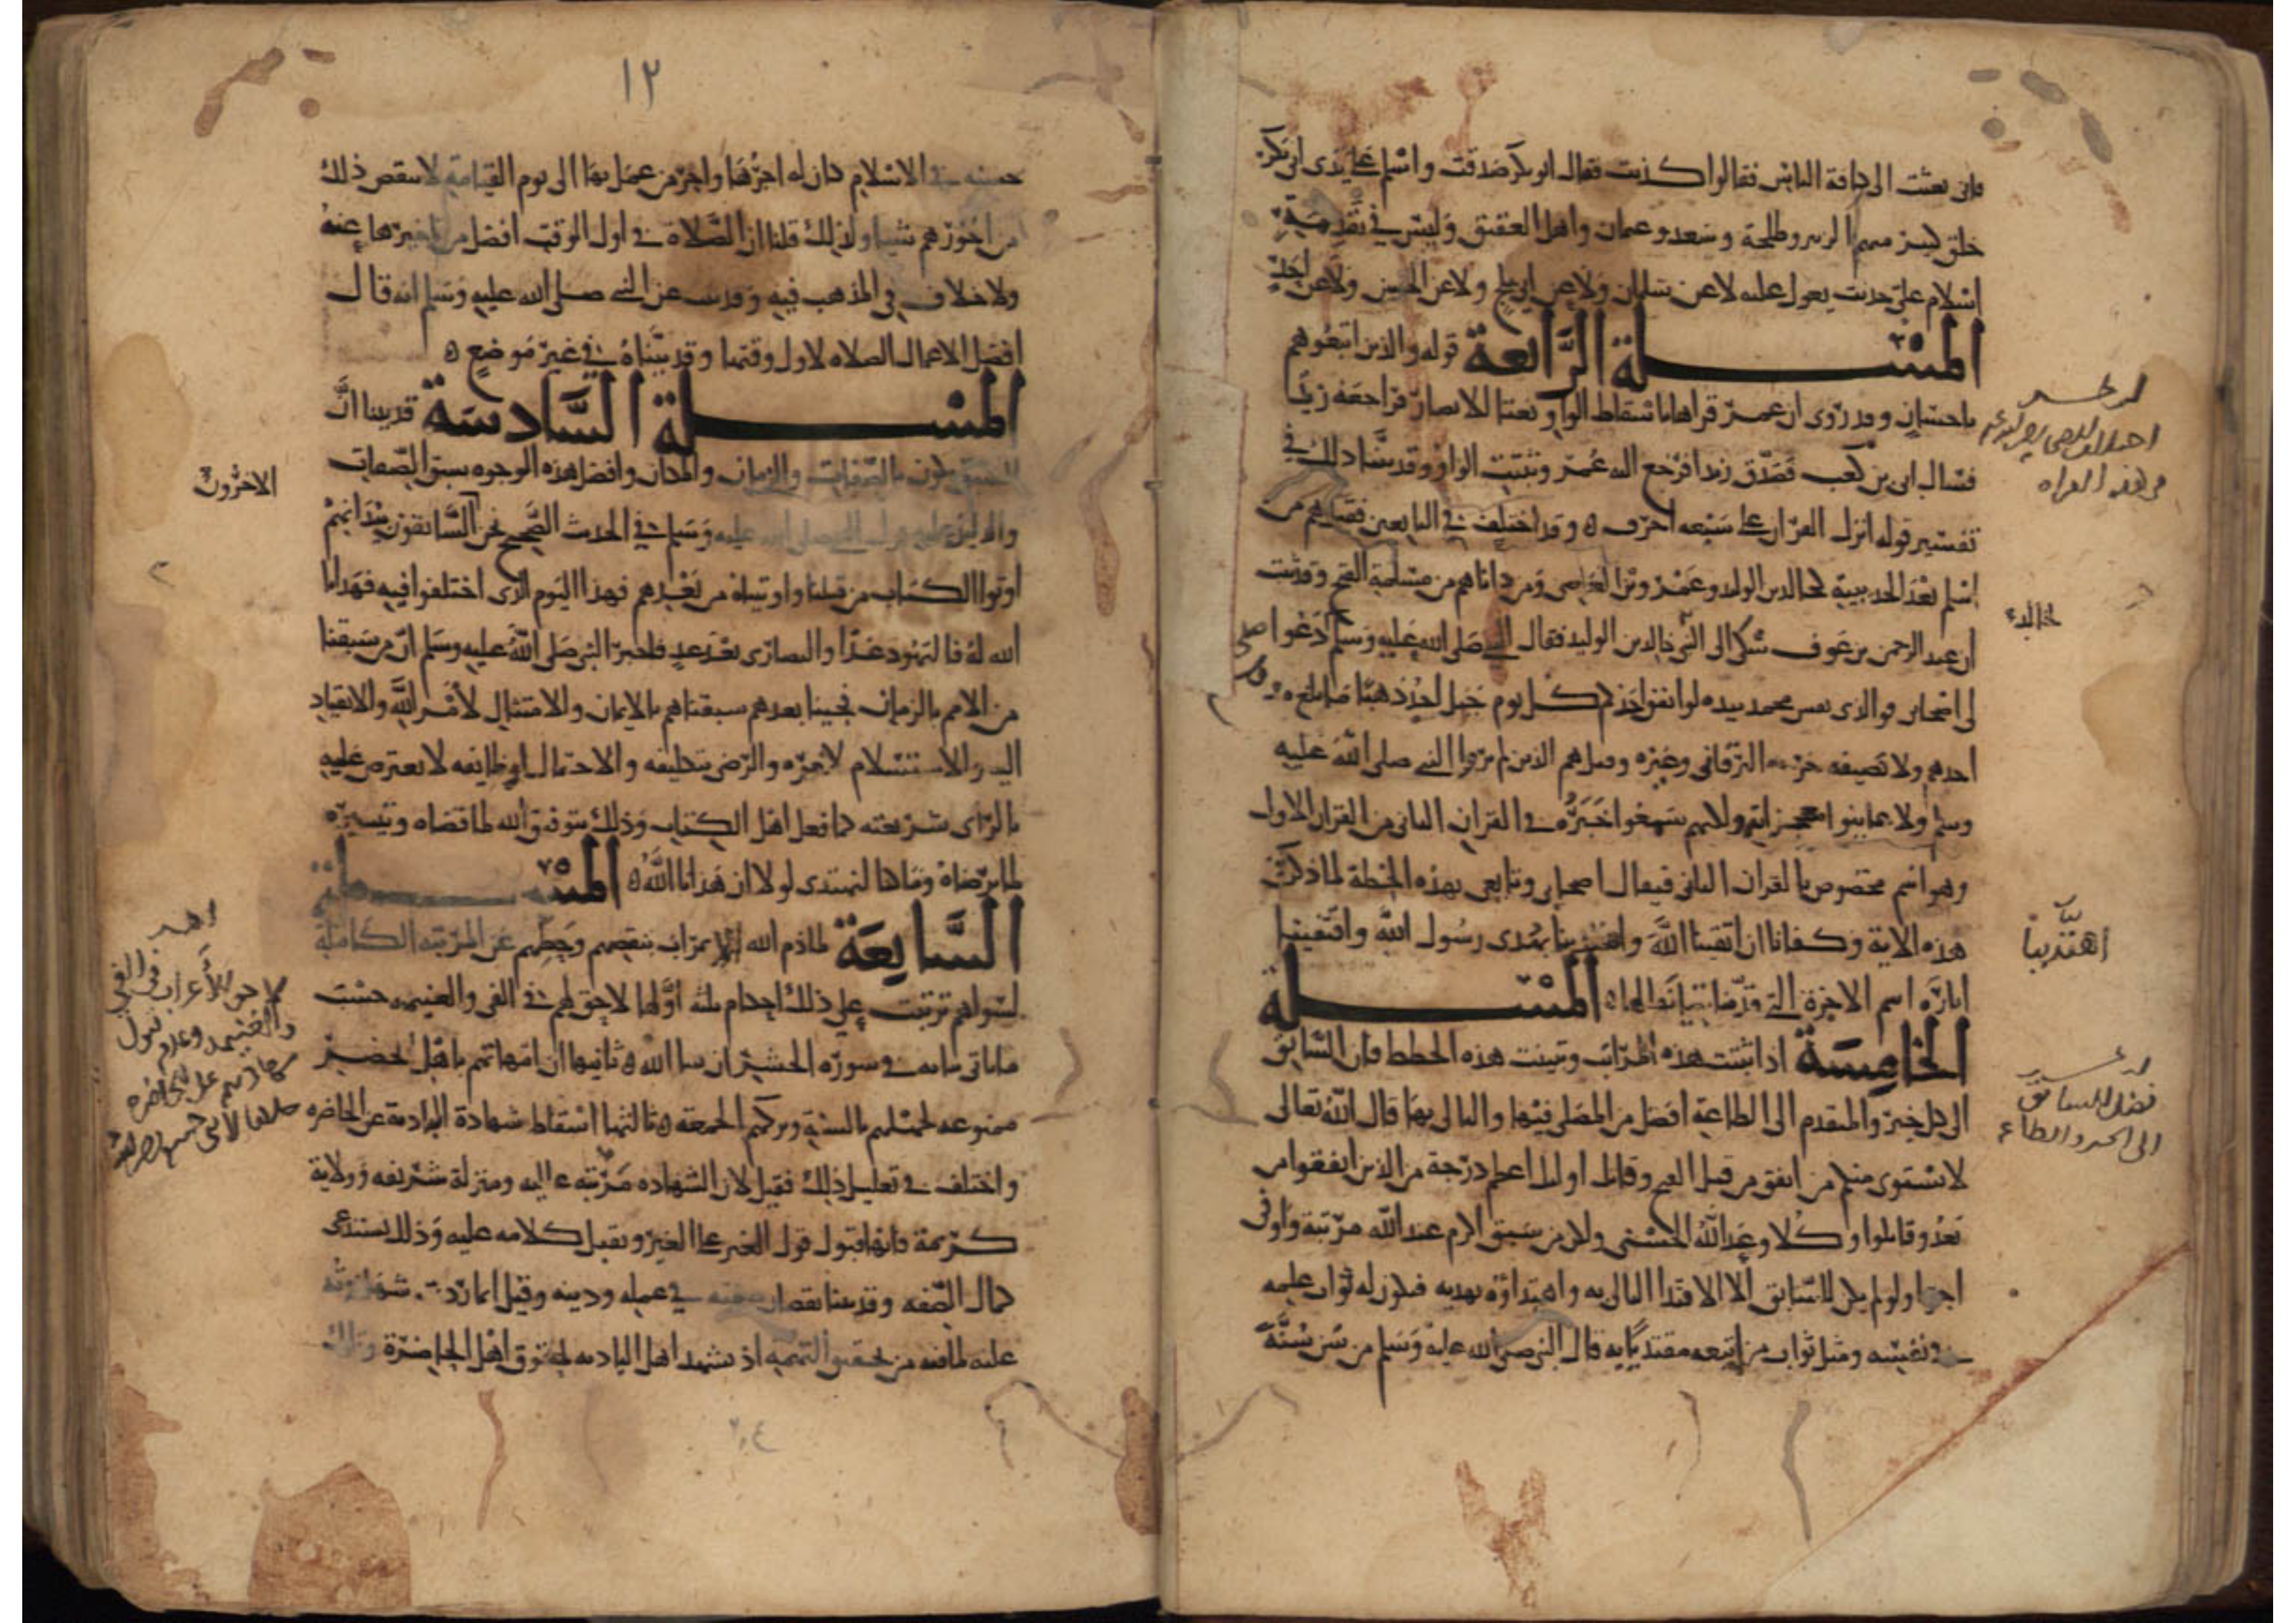 فإني بعثت إلى كافة الناس فقالوا كذبت فقال ابو بكر صدقت واسلم على يدي ابي بكر
خلق كثير منهم الزبير وطلحة وسعد وعثمان واهل العقيق وليس في تقدمة
اسلام علي حديث يعول عليه لا عن سلمان ولا عن ولا عن الحسن ولا عن احد
المسئلة الرابعة قوله والذين اتبعوهم
باحسان وقد روي ان عمر قراها باسقاط الواو نعتا للانصار فراجعه زيد
فسال ابي بن كعب فصدق زيدا فرجع اليه عمر وثبتت الواو وقد بينا ذلك في
تفسير قوله انزل القران على سبعه احرف وقد اختلف في التابعين فقيل هم من
اسلم بعد الحديبية كخالد بن الوليد وعمرو بن العاصي ومن داناهم من مسلمة الفتح وقد ثبت
ان عبد الرحمن بن عوف شكى الى النبي خالد بن الوليد فقال النبي صلى الله عليه وسلم دعوا
لي اصحابي فوالذي نفس محمد بيده لو انفق احدكم كل يوم جبل احد ذهبا ما بلغ مد
احدهم ولا نصيفه خرجه البرقاني وغيره وقيل هم الذين لم يروا النبي صلى الله عليه
وسلم ولا عاينوا معجزاته ولكنهم سمعوا خبره في القران الثاني من القران الاول
وهو اسم مخصوص بالقران الثاني فيقال صحابي وتابعي بهذه الخطة لما ذكرت
هذه الاية وكفانا ان اتقينا الله واهتدينا بهدى رسول الله واقتفينا
اثاره اسم الاخرة التي قدمنا بيانها المسئلة
الخامسة اذا ثبتت هذه المراتب وتبينت هذه الخطط فان السابق
الى كل خير والمتقدم الى الطاعة افضل من المصلي فيها والتالي بها قال الله تعالى
لا يستوي منكم من انفق من قبل الفتح وقاتل اولئك اعظم درجة من الذين انفقوا من
بعد وقاتلوا وكلا وعد الله الحسنى ولكن من سبق اكرم عند الله مرتبة واوفى
اجرا ولو لم يكن للسابق الا الاقتدا التالي به واهتداؤه بهديه فيكون له ثواب عمله
في نفسه ومثل ثواب من اتبعه مقتديا به قال النبي صلى الله عليه وسلم من سن سنة
خالد
اهتدينا
فضل السابق
الى الخير والطاعة
١٢
حسنة في الاسلام كان له اجرها واجر من عمل بها الى يوم القيامة لا ينقص ذلك
من اجورهم شيا ولذلك قلنا ان الصلاة في اول الوقت افضل من تاخيرها عنه
ولا خلاف في المذهب فيه وقد ثبت عن النبي صلى الله عليه وسلم انه قال
افضل الاعمال الصلاه لاول وقتها وقد بيناه في غير موضع
المسئلة السادسة قد بينا ان
السبق يكون بالصفات والزمان والمكان وافضل هذه الوجوه سبق الصفات
والدليل عليه قوله النبي صلى الله عليه وسلم في الحديث الصحيح نحن السابقون بيد انهم
اوتوا الكتاب من قبلنا واوتيناه من بعدهم فهذا اليوم الذي اختلفوا فيه فهدانا
الله له فاليهود غدا والنصارى بعد غد فاخبر النبي صلى الله عليه وسلم ان من سبقنا
من الامم بالزمان فجينا بعدهم سبقناهم بالايمان والامتثال لامر الله والانقياد
اليه والاستسلام لامره والرضى بتكليفه والاحتمال لوظايفه لا نعترض عليه
بالراي شريعته كما فعل اهل الكتاب وذلك بتوفيق الله لما قضاه وتيسيره
لما يرضاه وما كنا لنهتدي لولا ان هدانا الله المسئلة
السابعة لما ذم الله الاعراب بنقصهم وحطهم عن المرتبة الكاملة
لسواهم ترتبت على ذلك احكام ثلثة اولها لا حق لهم في الفي والغنيمه حسبت
ما ياتي بيانه في سورة الحشر ان شا الله ثانيها ان امامتهم باهل الحضر
ممنوعه لجهلهم بالسنة وتركهم الجمعة ثالثها اسقاط شهادة البادية عن الحاضره
واختلف في تعليل ذلك فقيل لان الشهاده مرتبة عالية ومنزلة شريفه وولاية
كريمة فانها قبول قول الغير على الغير وتقبل كلامه عليه وذلك يستدعي
كمال الصفه وقد بينا نقصان صفته في عمله ودينه وقيل انما ردت شهادته
عليه لما فيه من تحقيق التهمة اذ يشهد اهل البادية بحقوق اهل الحاضرة وتلك
الاخرون
٢٠٤